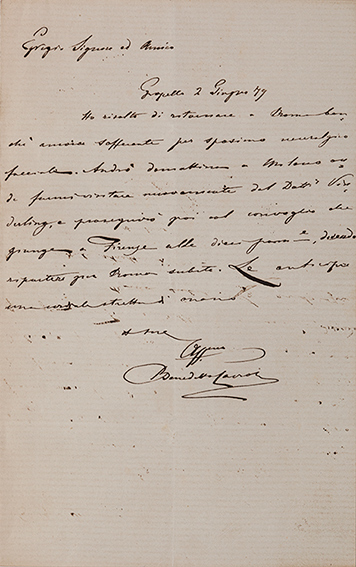 Egregio Signore ed Amico
Gropello 2 Giugno 79
Ho risolto di ritornare a Roma ben
chè ancora sofferente per spasimo nevralgico
facciale. Andrò domattina a Milano on
de farmi visitare nuovamente dal Dott.
e proseguirò poi col convoglio che
giunge a Firenze alle dieci pom.e, dovendo
ripartire per Roma subito. Le anticipo
una cordiale stretta di mano
Affmo
Benedetto Cairoli